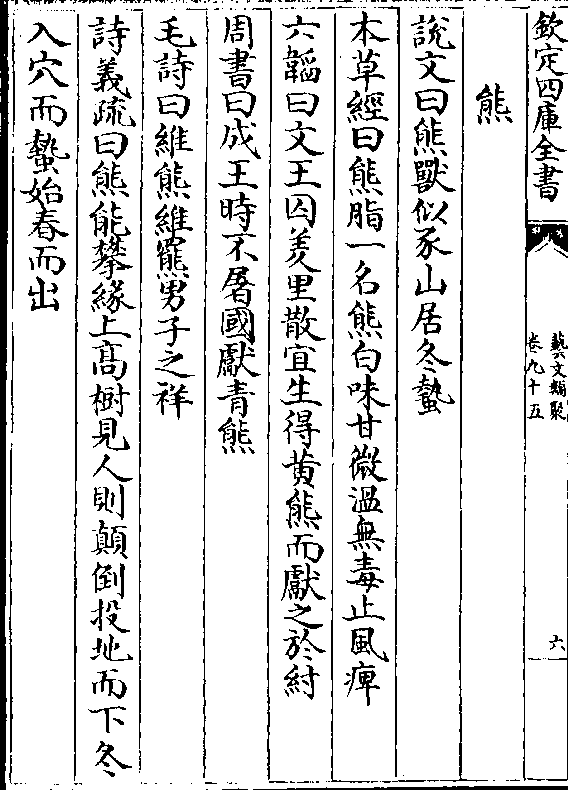 欽定四庫全書
藝文類聚
卷九十五
六
熊
說文曰熊獸似豕山居冬蟄
本草經曰熊脂一名熊白味甘微温無毒止風痺
六韜曰文王囚羑里散宜生得黄熊而獻之於紂
周書曰成王時不屠國獻青熊
毛詩曰維熊維羆男子之祥
詩義疏曰熊能攀緣上髙樹見人則顛倒投地而下冬
入穴而蟄始春而出